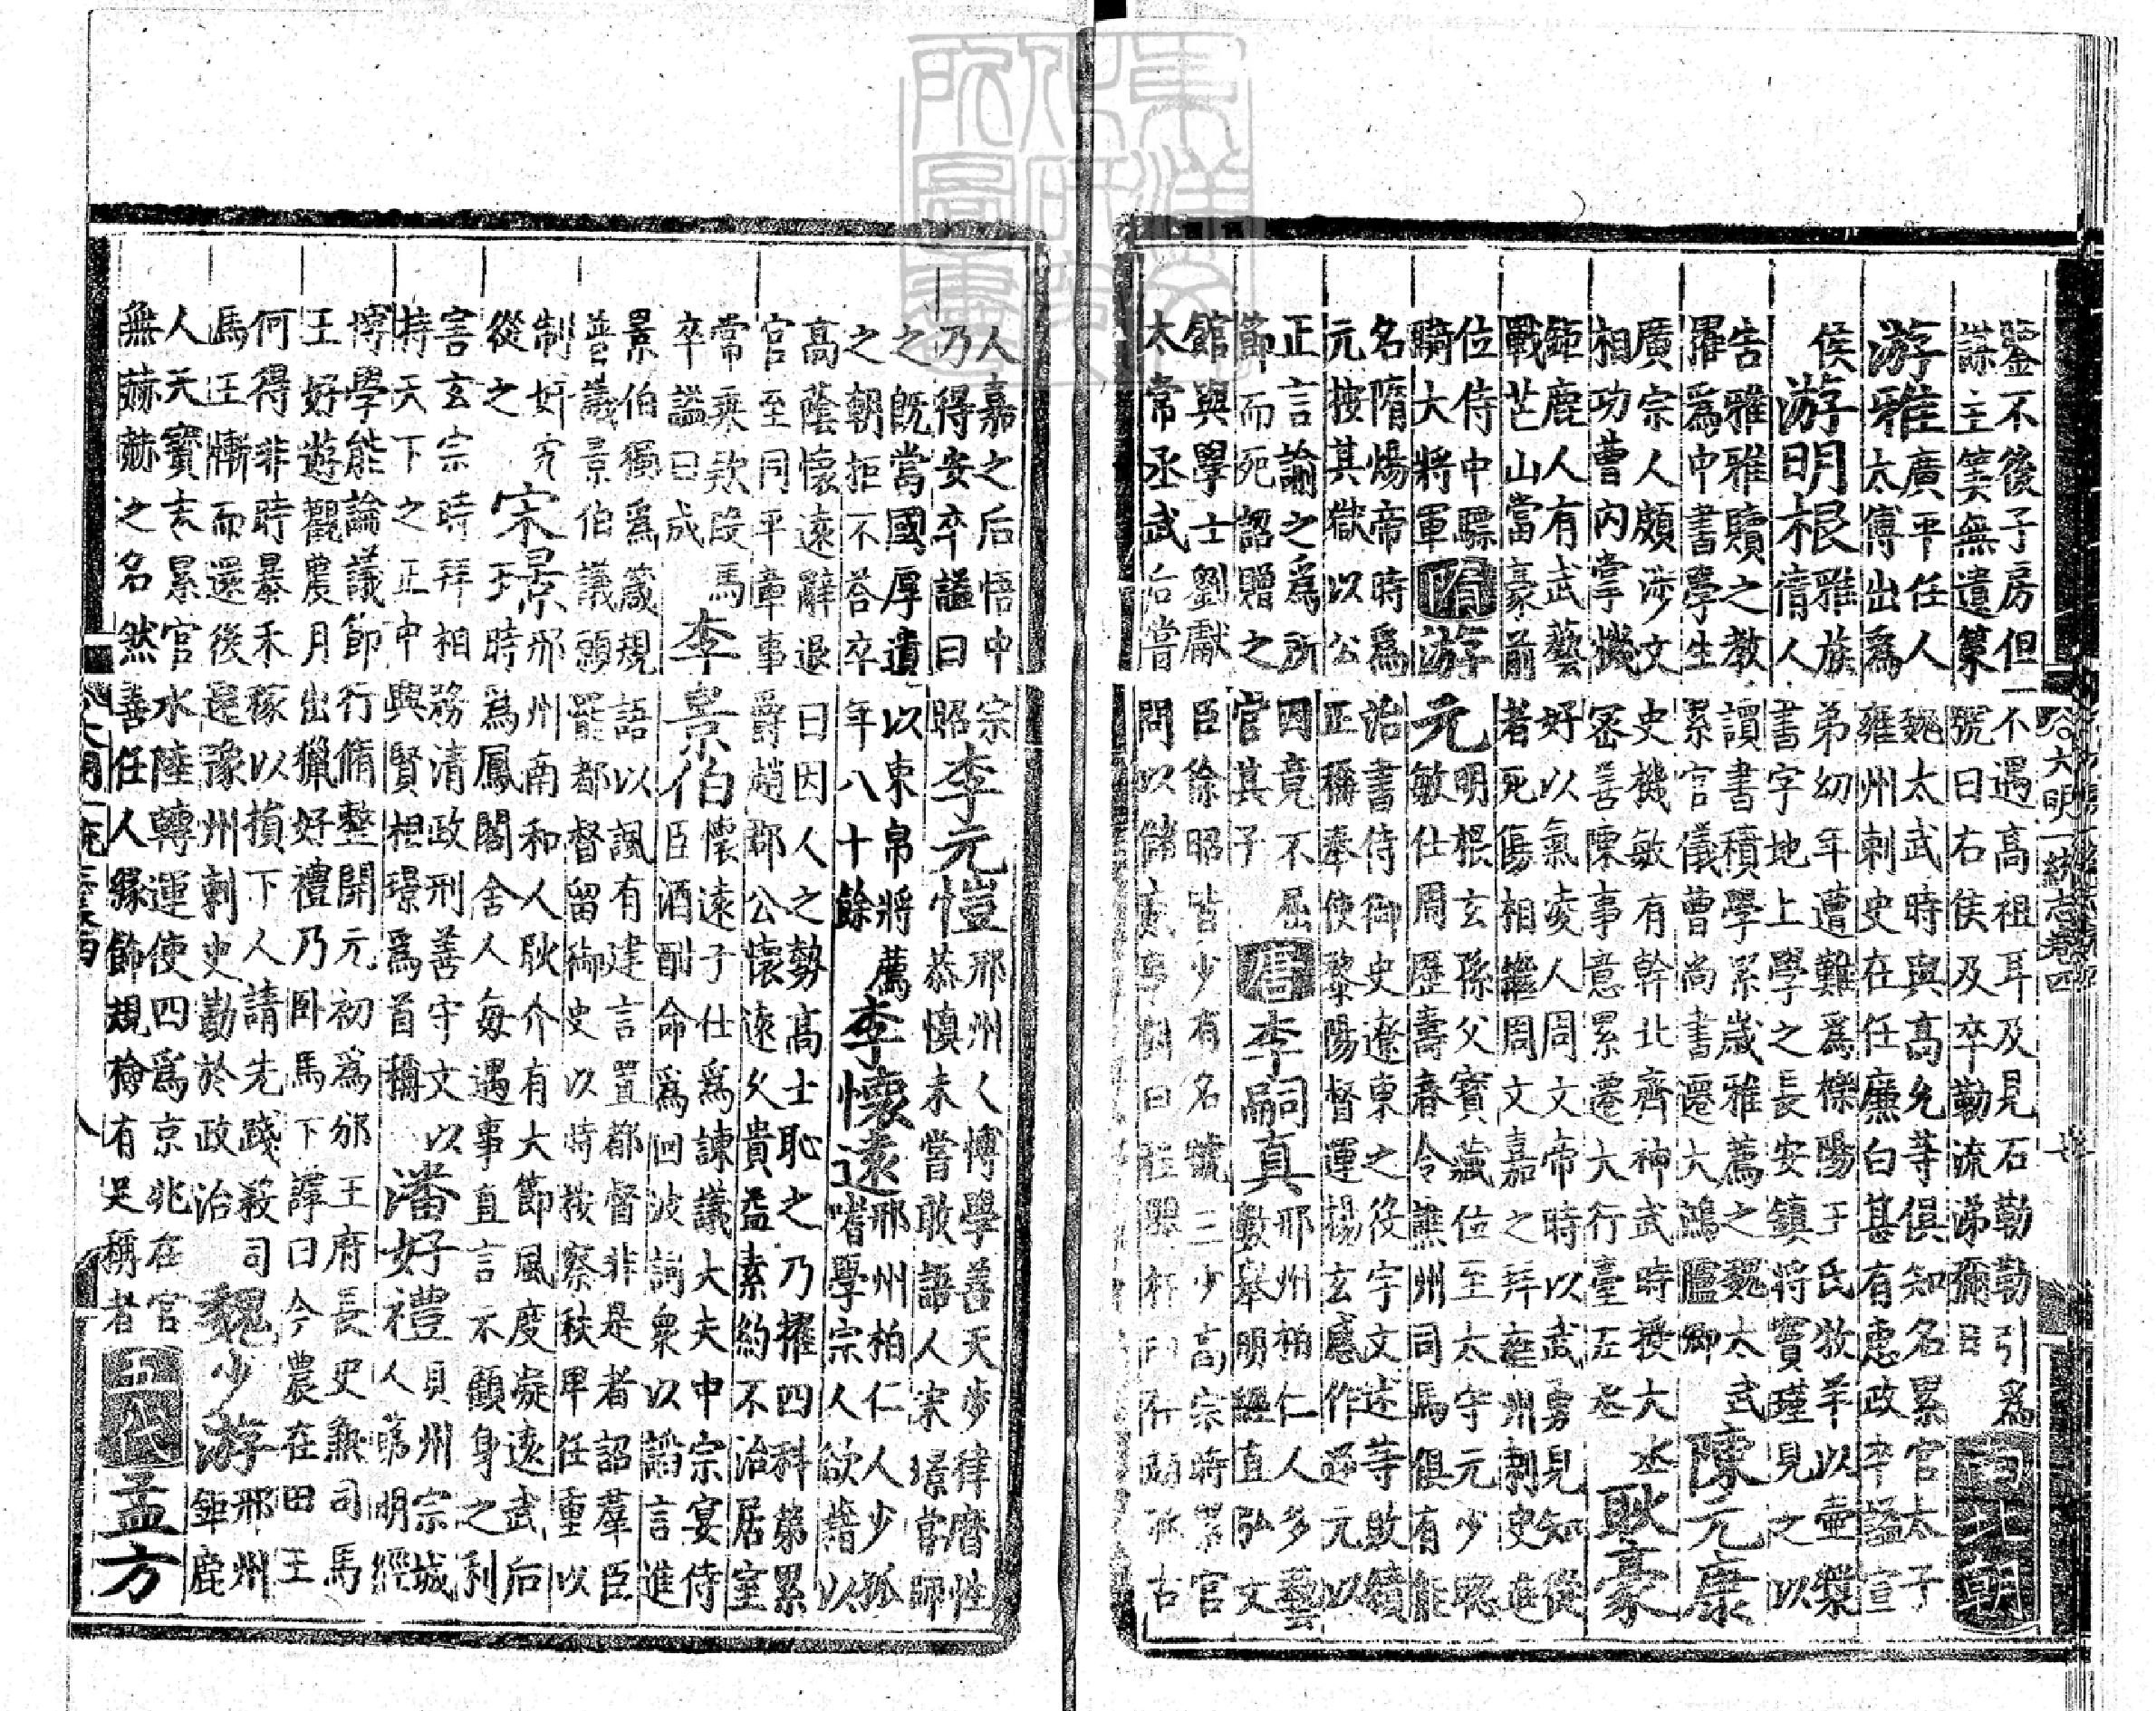 大明一統志卷四
鑒不後子房但不遇高祖耳及見石勒勒引為
謀主筭無遺策號曰右侯及卒勒流涕彌日
南北朝
游雅
廣平任人魏太武時與高允等俱知名累官太子
太傅出為雍州刺史在任廉白甚有惠政卒謚宣
侯
游明根
雅族弟幼年遭難為櫟陽王氏牧羊以壺漿
倩人書字地上學之長安鎮將竇瑾見之以
告雅雅贖之教讀書積學累歲雅薦之魏太武
擢為中書學生累官儀曹尚書遷大鴻臚卿
陳元康
廣宗人頗涉文史機敏有幹北齊神武時授大丞
相功曹内掌機密善陳事意累遷大行臺左丞
耿豪
鉅鹿人有武藝好以氣凌人周文帝時以武勇見知從
戰芒山當豪前者死傷相繼周文嘉之拜雍州刺史進
位侍中驃
騎大將軍
隋
游元
明根玄孫父寶藏位至太守元少聰
敏仕周歷壽春令譙州司馬俱有能
名隋煬帝時為治書侍御史遼東之役宇文述等敗績
元按其獄以公正稱奉使黎陽督運楊玄感作逆元以
正言諭之為所囚竟不屈
節而死詔贈之官其子
唐
李嗣真
邢州柏仁人多藝
數舉明經直弘文
館與學士劉獻臣徐昭皆少有名號三少高宗時累官
太常丞武后嘗問以儲貳事對曰程嬰杵臼存趙孤古
人嘉之后悟中宗
乃得安卒謚曰昭
李元愷
邢州人博學善天步律曆性
恭慎未嘗敢語人宋璟嘗師
之既當國厚遺以束帛將薦
之朝拒不答卒年八十餘
李懷遠
邢州柏仁人少孤
嗜學宗人欲藉以
高蔭懷遠辭退曰因人之勢高士恥之乃擢四科第累
官至同平章事爵趙郡公懷遠久貴益素約不治居室
常乘款段馬
卒謚曰成
李景伯
懷遠子仕為諫議大夫中宗宴侍
臣酒酣命為回波詞衆以諂言進
景伯獨為箴規語以諷有建言置都督非是者詔羣臣
普議景伯議願罷都督留御史以時按察秩卑任重以
制奸宄
從之
宋璟
邢州南和人耿介有大節風度凝遠武后
時為鳳閣舍人每遇事直言不顧身之利
害玄宗時拜相務清政刑善守文以
持天下之正中興賢相璟為首稱
潘好禮
貝州宗城
人第明經
博學能論議節行脩整開元初為邠王府長史兼司馬
王好遊觀農月出獵好禮乃卧馬下諫曰今農在田王
何得非時暴禾稼以損下人請先踐殺司
馬王慚而還後遷豫州刺史勤於政治
魏少游
邢州
鉅鹿
人天寶末累官水陸轉運使四為京兆在官
無赫赫之名然善任人緣飾規檢有足稱者
五代
孟方